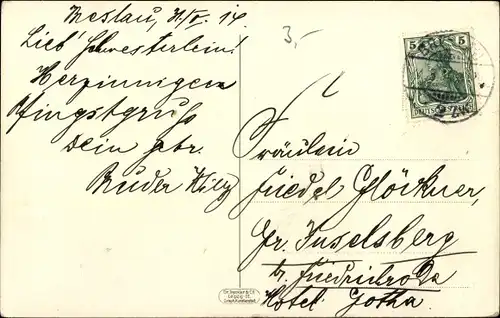 Breslau, 31/V. 14.
Lieb' Schwesterlein!
Herzinnigen
Pfingstgruß
Dein gtr.
Bruder Willy
3,-
Fräulein
Friedel Glöckner,
Gr. Inselsberg
b. Friedrichroda
Hotel Gotha.
5 5
DEUTSCHES REICH